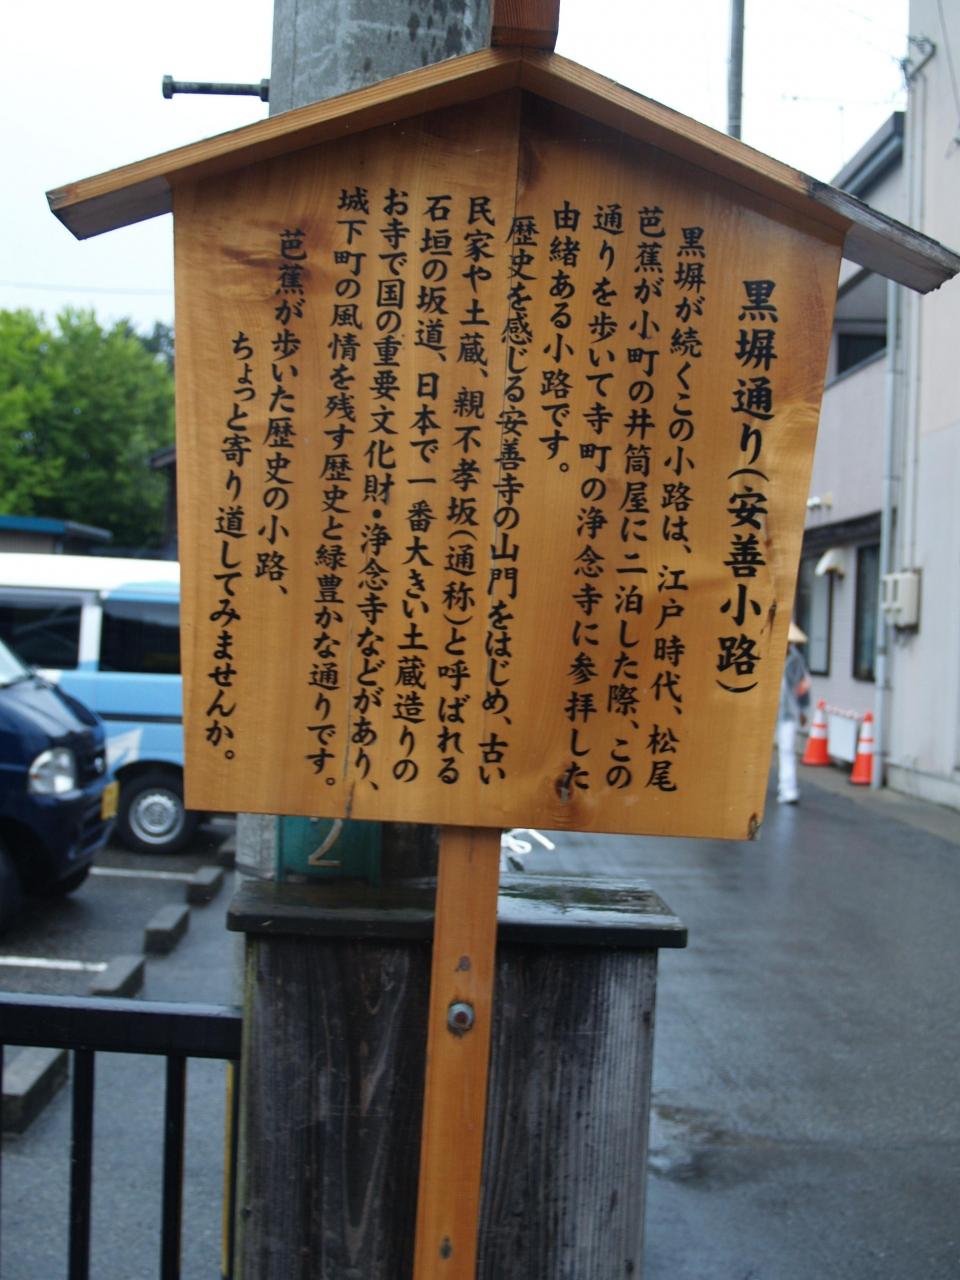 黒塀通り(安善小路)
黒塀が続くこの小路は、江戸時代、松尾
芭蕉が小町の井筒屋に二泊した際、この
通りを歩いて寺町の浄念寺に参拝した
由緒ある小路です。
歴史を感じる安善寺の山門をはじめ、古い
民家や土蔵、親不孝坂(通称)と呼ばれる
石垣の坂道、日本で一番大きい土蔵造りの
お寺で国の重要文化財・浄念寺などがあり、
城下町の風情を残す歴史と緑豊かな通りです。
芭蕉が歩いた歴史の小路、
ちょっと寄り道してみませんか。
2